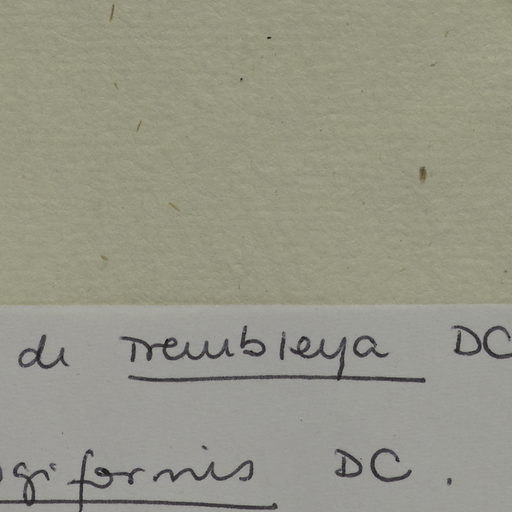 de Trembleya DC
ogiformis DC.